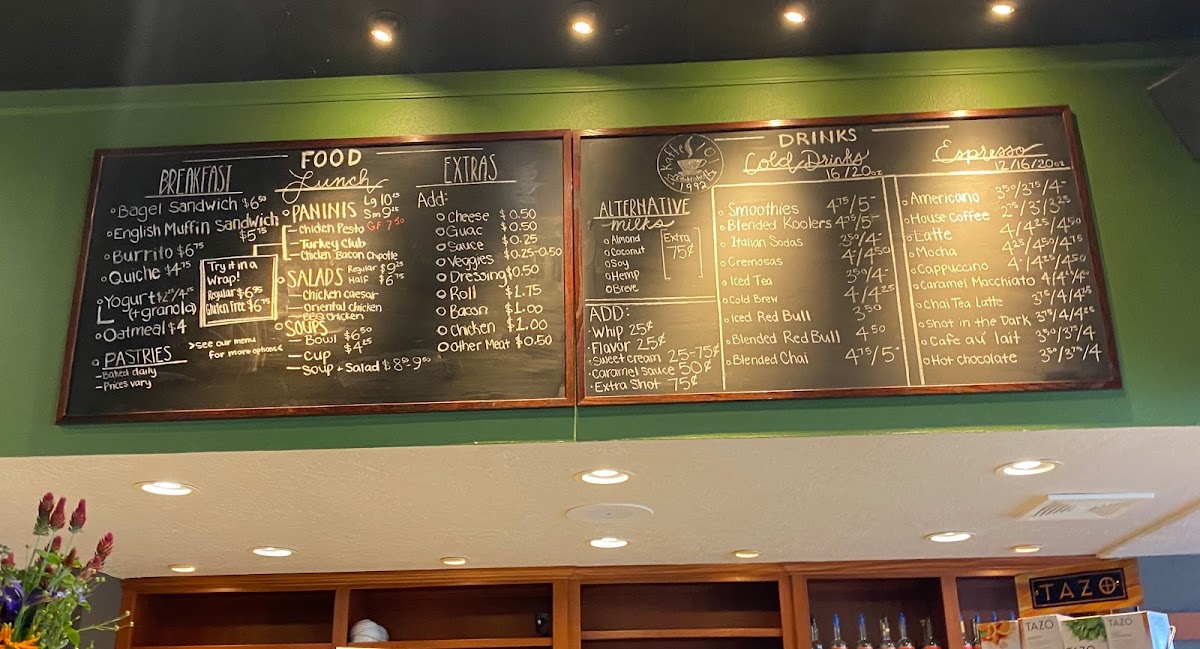 FOOD
BREAKFAST
Bagel Sandwich $6.50
English Muffin Sandwich
$5.75
Burrito $6.75
Quiche $4.75
Yogurt
(+granola)
Oatmeal $4
PASTRIES
- Baked daily
- Prices vary
Try it in a
Wrap!
Regular $6.95
Gluten Free $6.75
>See our menu
for more options<
Lunch
PANINIS
Sm 9.25
- Chicken Pesto GF 7.50
- Turkey Club
- Chicken Bacon Chipotle
SALADS Regular $9.25
Half $6.75
- Chicken caesar
- Oriental Chicken
- BBQ Chicken
SOUPS
- Bowl $6.50
- Cup $4.25
- Soup + Salad
EXTRAS
Add:
Cheese $0.50
Guac $0.50
Sauce $0.25
Veggies $0.25-0.50
Dressing $0.50
Roll $1.75
Bacon $1.00
Chicken $1.00
Other Meat $0.50
DRINKS
Kaffe
1992
ALTERNATIVE
milks
Almond
Coconut
Soy
Hemp
Breve
Extra
75¢
ADD:
· Whip 25¢
· Flavor 25¢
· Sweet cream 25-75¢
· Caramel Sauce 50¢
· Extra Shot 75¢
Cold Drinks
16/20oz
Smoothies 4.75/5-
Blended Koolers 4.75/5-
Italian Sodas 3.50/4-
Cremosas 4/4.50
Iced Tea 3.50/4-
Cold Brew 4/4.25
Iced Red Bull 3.50
Blended Red Bull 4.50
Blended Chai 4.75/5-
Espresso
12/16/20oz
Americano 3.50/3.75/4-
House Coffee 2.75/3/3.25
Latte 4/4.25/4.50
Mocha 4.25/4.50/4.75
Cappuccino 4-/4.25/4.50
Caramel Macchiato
Chai Tea Latte 3.75/4/4.25
Shot in the Dark 3.75/4/4.25
Cafe au lait 3.50/3.75/4
Hot chocolate 3.50/3.75/4
TAZO
TAZO
TAZO
TAZO